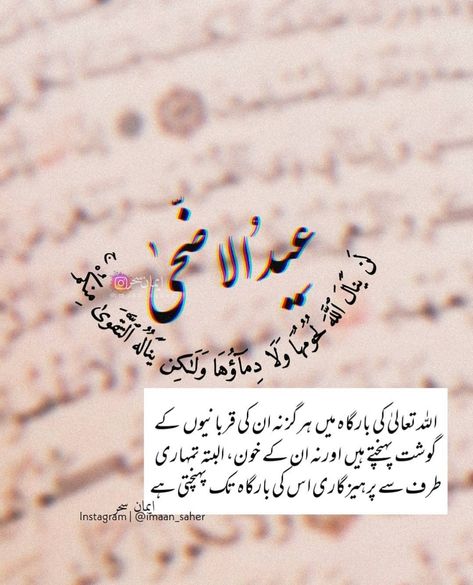 عید الاضحیٰ
ایمان سحر
لَن يَنَالَ اللَّهَ لُحُومُهَا وَلَا دِمَآؤُهَا وَلَٰكِن يَنَالُهُ التَّقْوَىٰ مِنكُمْ
اللہ تعالیٰ کی بارگاہ میں ہرگز نہ ان کی قربانیوں کے
گوشت پہنچتے ہیں اور نہ ان کے خون، البتہ تمہاری
طرف سے پرہیزگاری اس کی بارگاہ تک پہنچتی ہے
ایمان سحر
Instagram | @imaan_saher